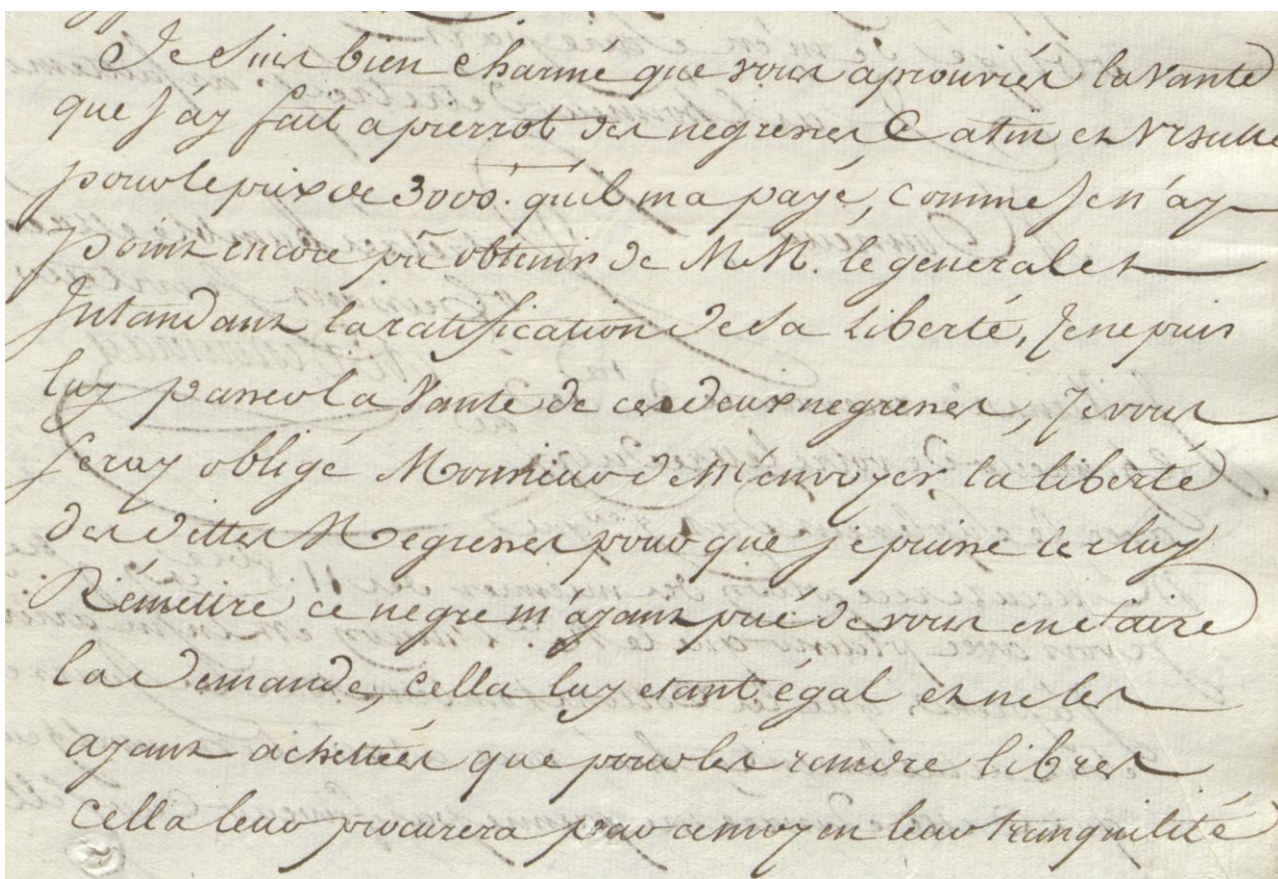 Je suis bien charmé que vous aprouviés la vante
que j'ay fait a pierrot des negresses Catin et Ursulle
pour le prix de 3000.ᵗ qu'il m'a payé, comme je n'ay
point encore pû obtenir de M.M. le general et
Intandant la ratification de sa liberté, je ne puis
luy passer la vante de ces deux negresses, je vous
seray obligé Monsieur de m'envoyer la liberté
des dittes Negresses pour que je puisse les luy
Rémettre ce negre m'ayant prié de vous en faire
la demande, cella luy etant égal et ne les
ayant achettées que pour les rendre libres
cella leur procurera par ce moyen leur tranquilité